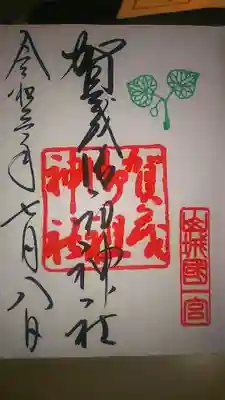 山城國一宮
賀茂御祖神社
賀茂
御祖
神社
令和三年七月八日